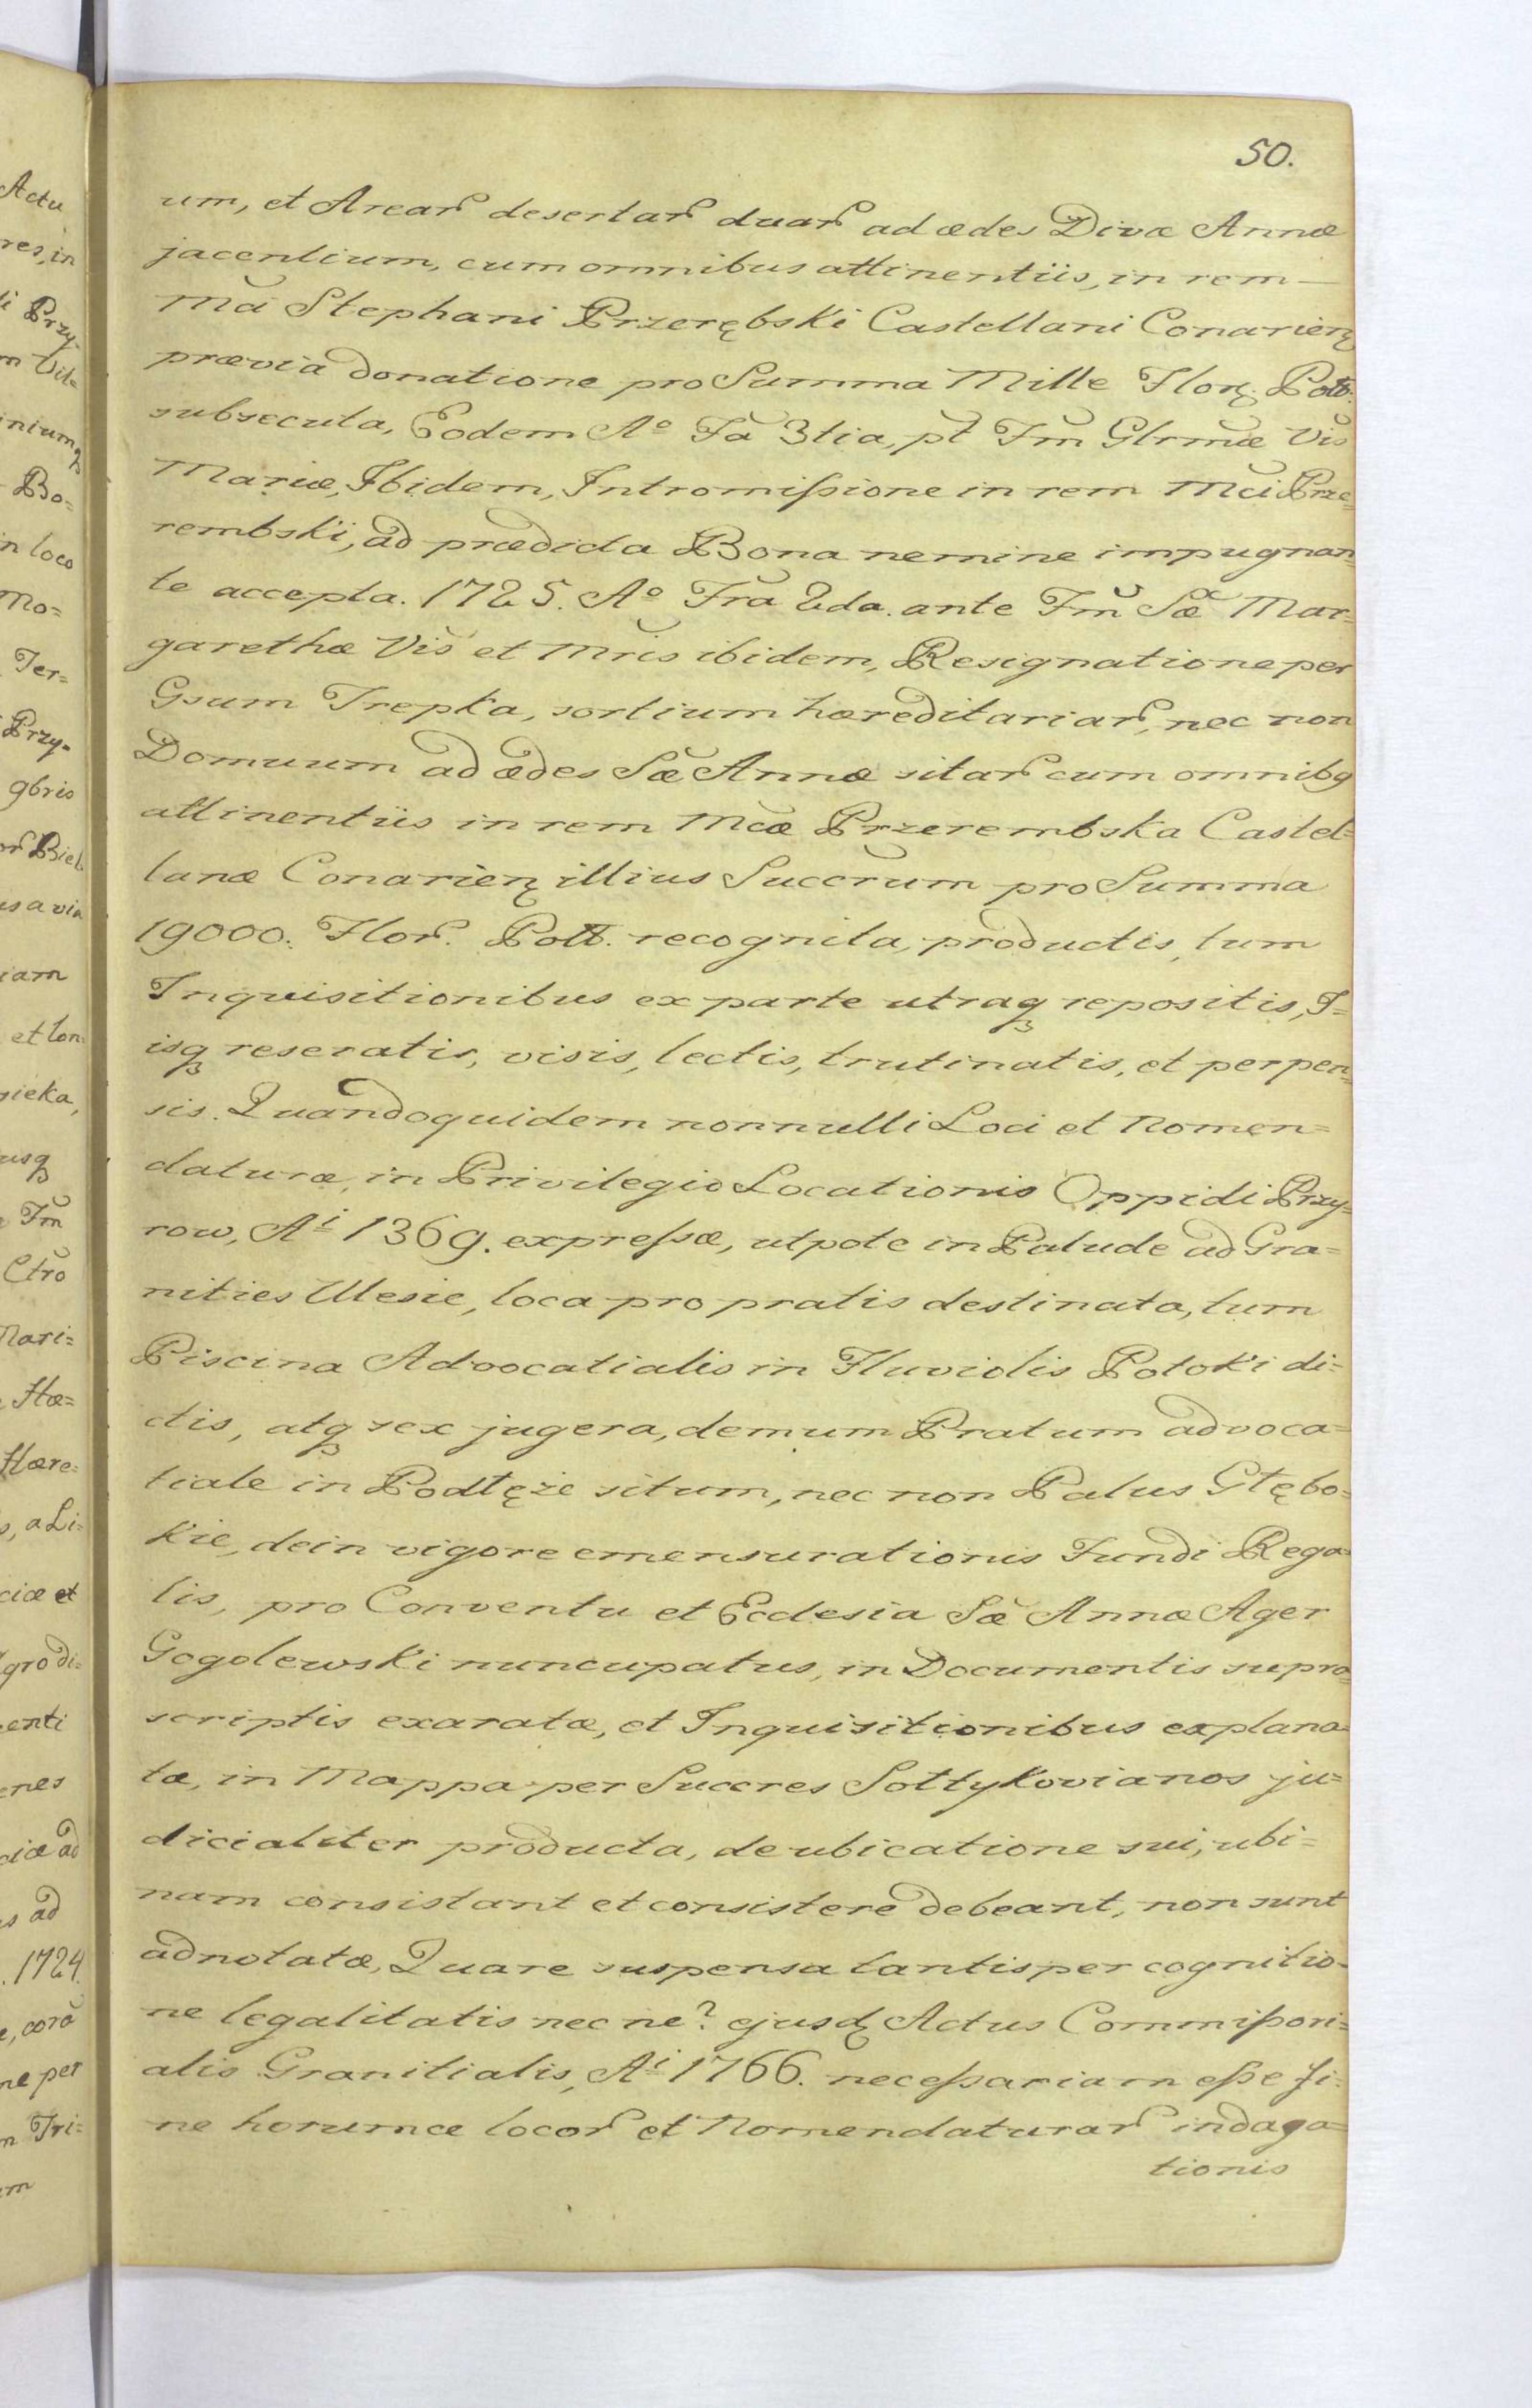 50.
um, et Arear̃ desertar̃ duar̃ ad ædes Divæ Annæ
jacentium, cum omnibus attinentiis, in rem
Mci Stephani Przerębski Castellani Conarieñ
prævia donatione pro Summa Mille Flor. Poll.
subsecuta, Eodem Aº Fa 3tia, pt Fm̃ Glrmæ Vis
Mariæ, Ibidem, Intromissione in rem Mci Prze=
rembski, ad prædicta Bona nemine impugnan=
te accepta. 1725. Aº Fra 2da. ante Fm̃ Sæ Mar=
garethæ Vis et Mris ibidem, Resignatione per
Gsum Trepka, sortium hæreditariar̃, nec non
Domuum ad ædes Sæ Annæ sitar̃ cum omnibq
attinentiis in rem Mcæ Przerembska Castel=
lanæ Conarieñ illius Succrum pro Summa
19000. Flor̃. Poll. recognita, productis, tum
Inquisitionibus ex parte utraq repositis, I=
isq reseratis, visis, lectis, trutinatis, et perpen=
sis. Quandoquidem nonnulli Loci et Nomen=
claturæ, in Privilegio Locationis Oppidi Przy=
row, Ai 1369. expressæ, utpote in Palude ad Gra=
nities Ulesie, loca pro pratis destinata, tum
Piscina Advocatialis in Fluviolis Potoki di=
ctis, atq sex jugera, demum Pratum advoca=
tiale in Podlęże situm, nec non Palus Głębo=
kie, dein vigore emensurationis Fundi Rega=
lis, pro Conventu et Ecclesia Sæ Annæ Ager
Gogolewski nuncupatus, in Documentis supra=
scriptis exaratæ, et Inquisitionibus explana=
tæ, in Mappa per Succres Sołtykovianos ju=
dicialiter producta, de ubicatione sui, ubi=
nam consistant et consistere debeant, non sunt
adnotatæ, Quare suspensa tantisper cognitio=
ne legalitatis nec ne? ejusd Actus Commissori=
alis Granitialis, Ai 1766. necessariam esse fi=
ne horumce locor̃ et Nomenclaturar̃ indaga=
tionis